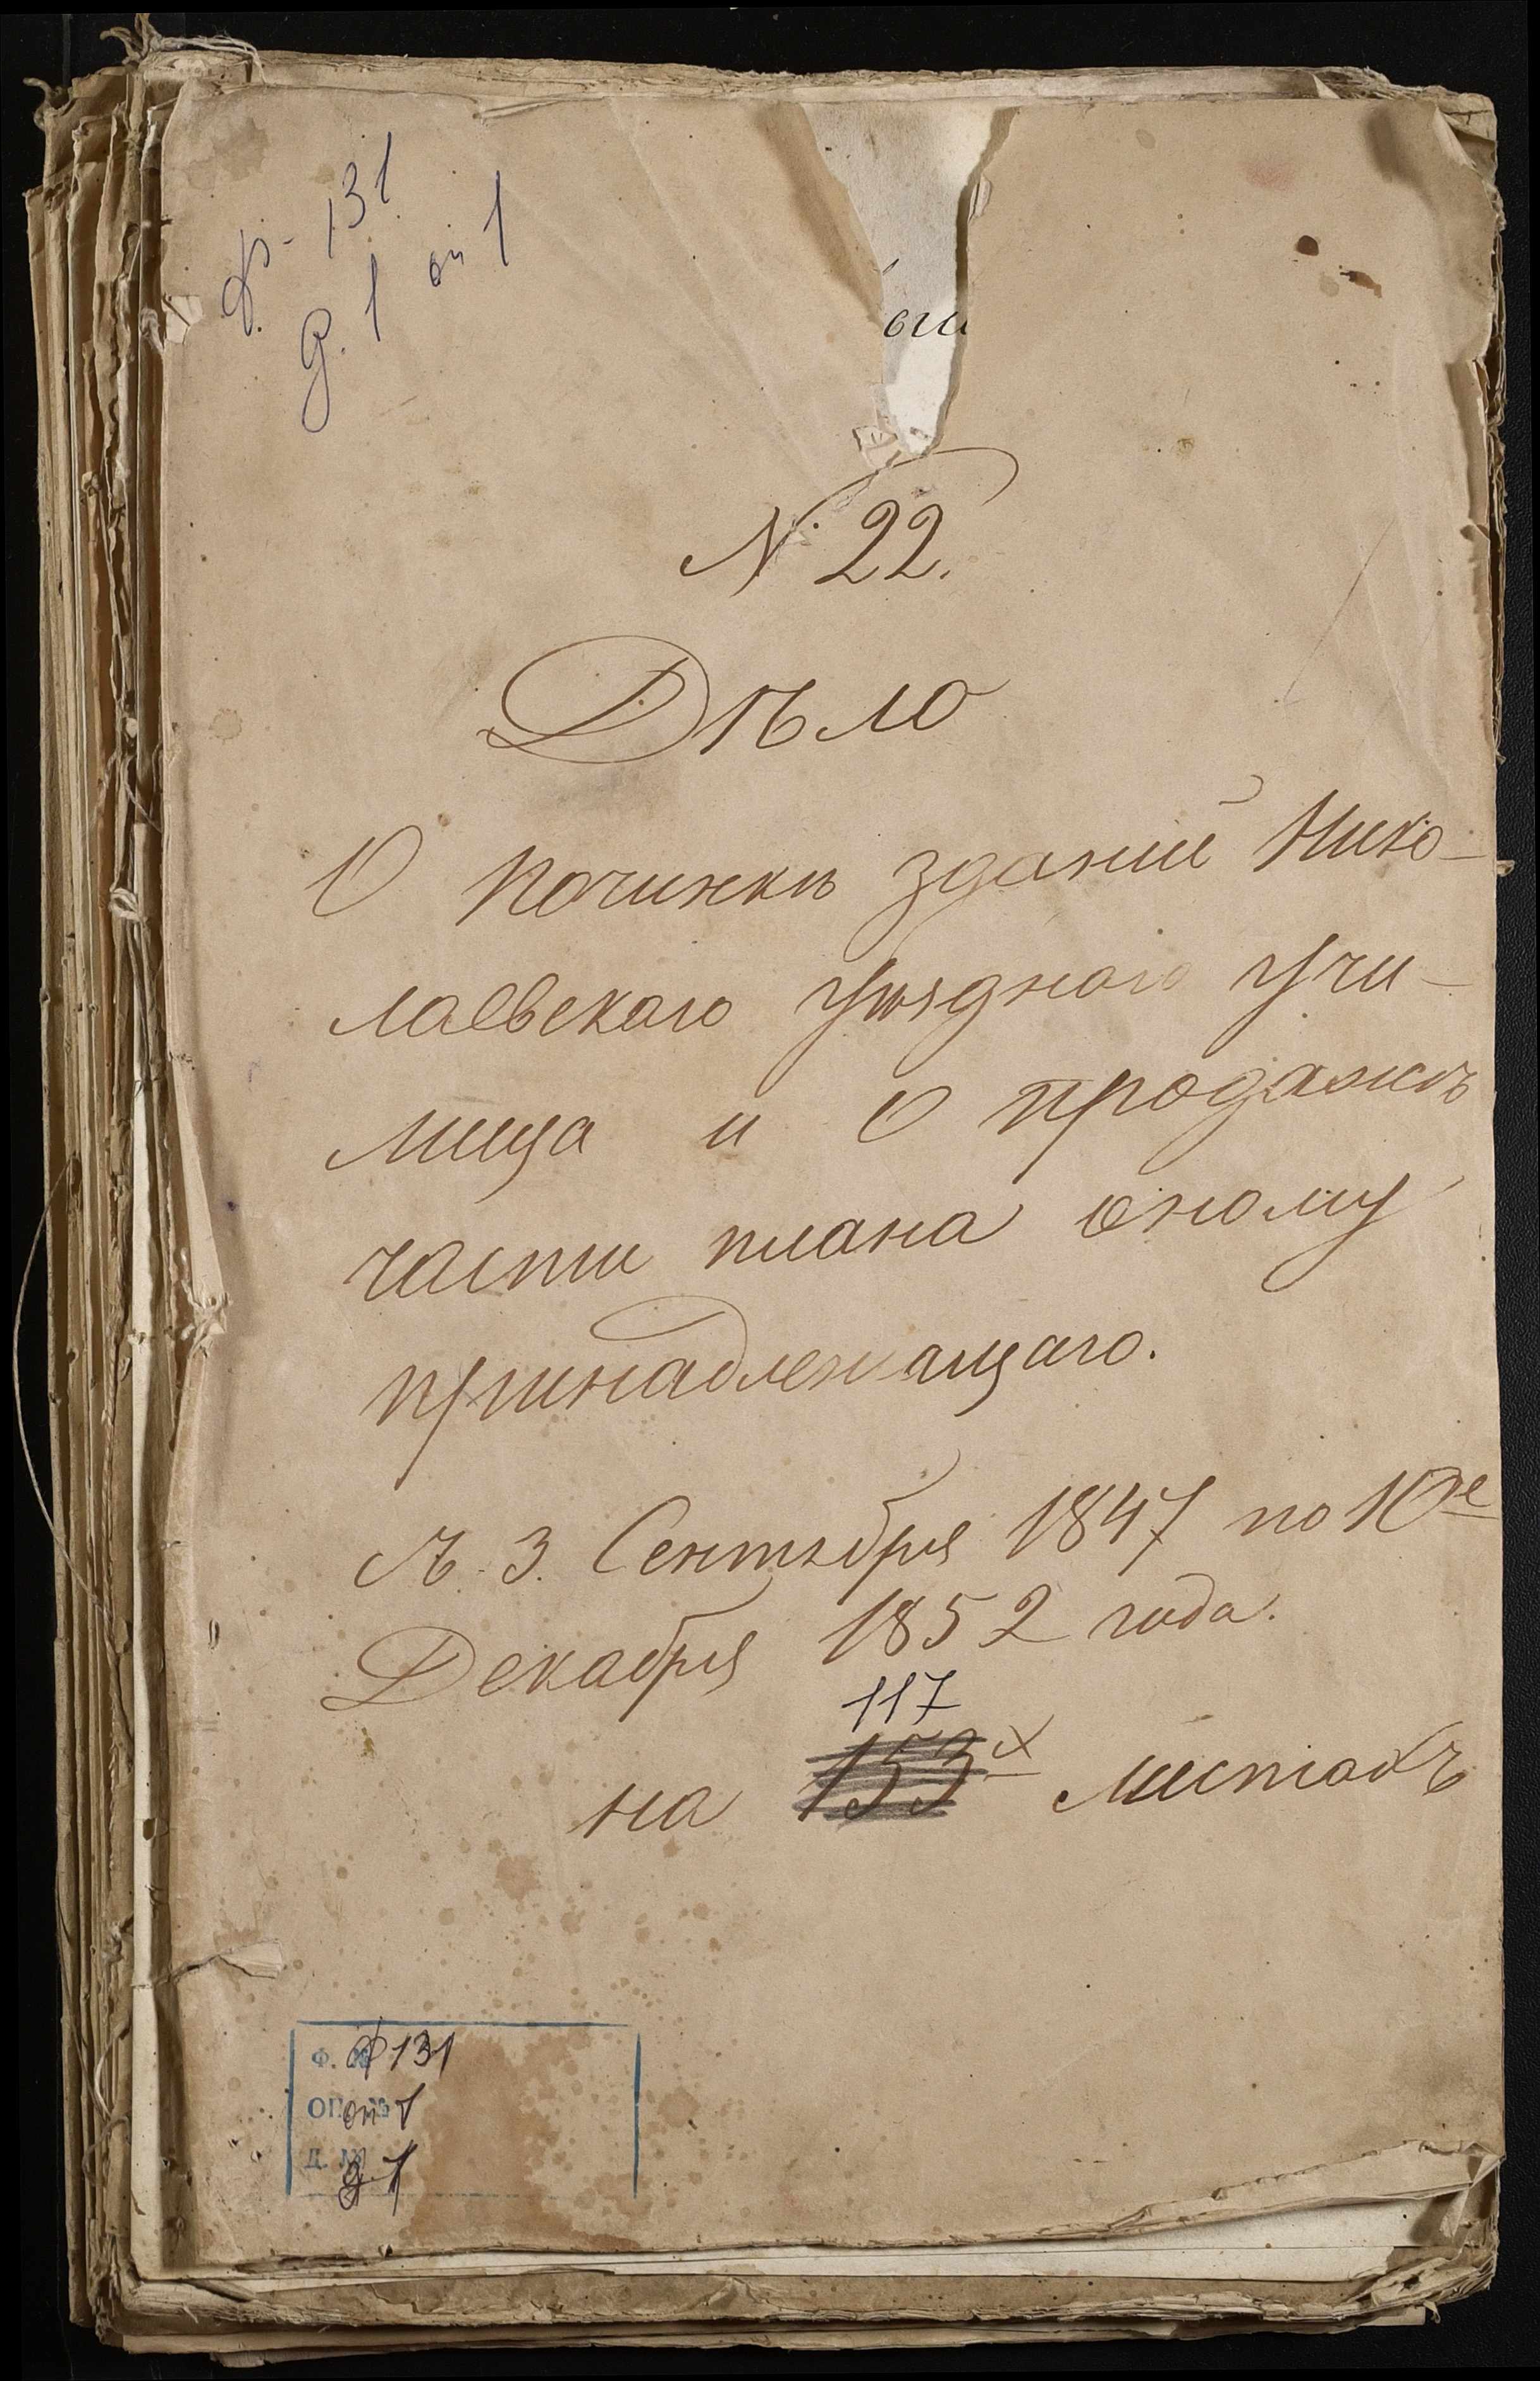 ф. 131
д. 1 оп 1
ыи
№ 22.
Дѣло
О починкѣ зданий Нико-
лаевскаго Уѣзднаго Учи-
лища и О продажѣ
части плана оному
принадлежащаго.
Съ 3. Сентября 1847 по 10е
Декабря 1852 года.
117
на 153х листахъ
Ф. № ф 131
ОП. № оп 1
Д. № д. 1